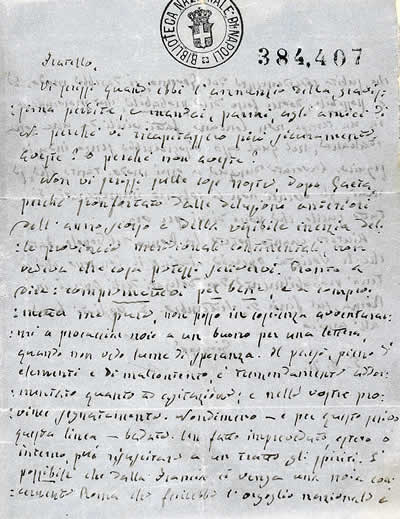 BIBLIOTECA NAZIONALE NAPOLI
384,407
Fratello,
Vi scrissi quando ebbi l'annunzio della gravis=
=sima perdita, e mandai, parmi, agli amici di
perché vi ricapitassero più sicuramente.
Aveste? o perché non aveste?
Non vi scrissi sulle cose nostre, dopo Gaeta,
perché sconfortato dalle delusioni anteriori
dell'anno scorso e dalla visibile inerzia del=
=le provincie meridionali continentali, non
vedeva che cosa potessi scrivervi. Pronto a
dire: compromettetevi per bene, e a compro=
mettere me pure, non posso in coscienza avventurar=
mi a procacciar noie a un buono per una lettera,
quando non vedo lume di speranza. Il paese, pieno d'
elementi e di malcontento, è tremendamente addor=
mentato quanto ad agitazioni; e nelle vostre pro=
vincie segnatamente. Nondimeno — e per questo scrivo
questa linea — badate. Un fatto impreveduto, estero o
interno, può risuscitare a un tratto gli spiriti. È
possibile che dalla Francia ci venga una noia con=
cernente Roma che ferisse l'orgoglio nazionale e